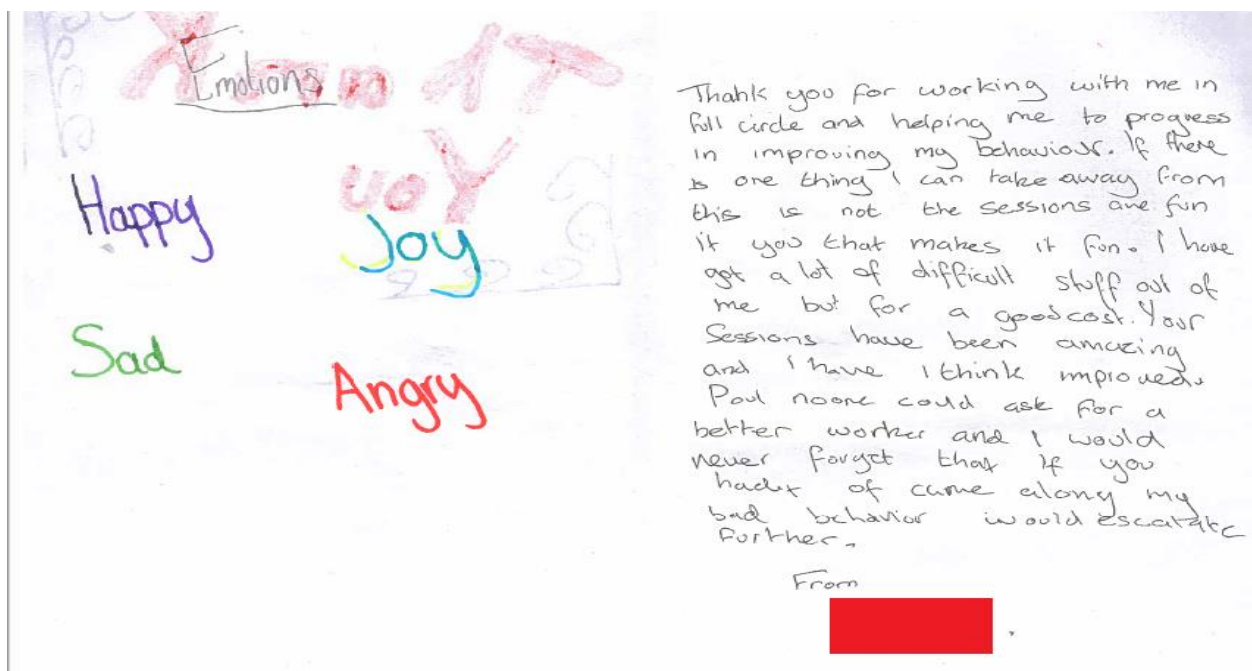 Emotions
Happy
Joy
Sad
Angry
Thank you for working with me in
full circle and helping me to progress
in improving my behaviour. If there
is one thing I can take away from
this is not the sessions are fun
it you that makes it fun. I have
got a lot of difficult stuff out of
me but for a good cost. Your
Sessions have been amazing
and I have I think improved.
Paul noone could ask for a
better worker and I would
never forget that if you
hadnt of came along my
bad behavior would escatate
further.
From